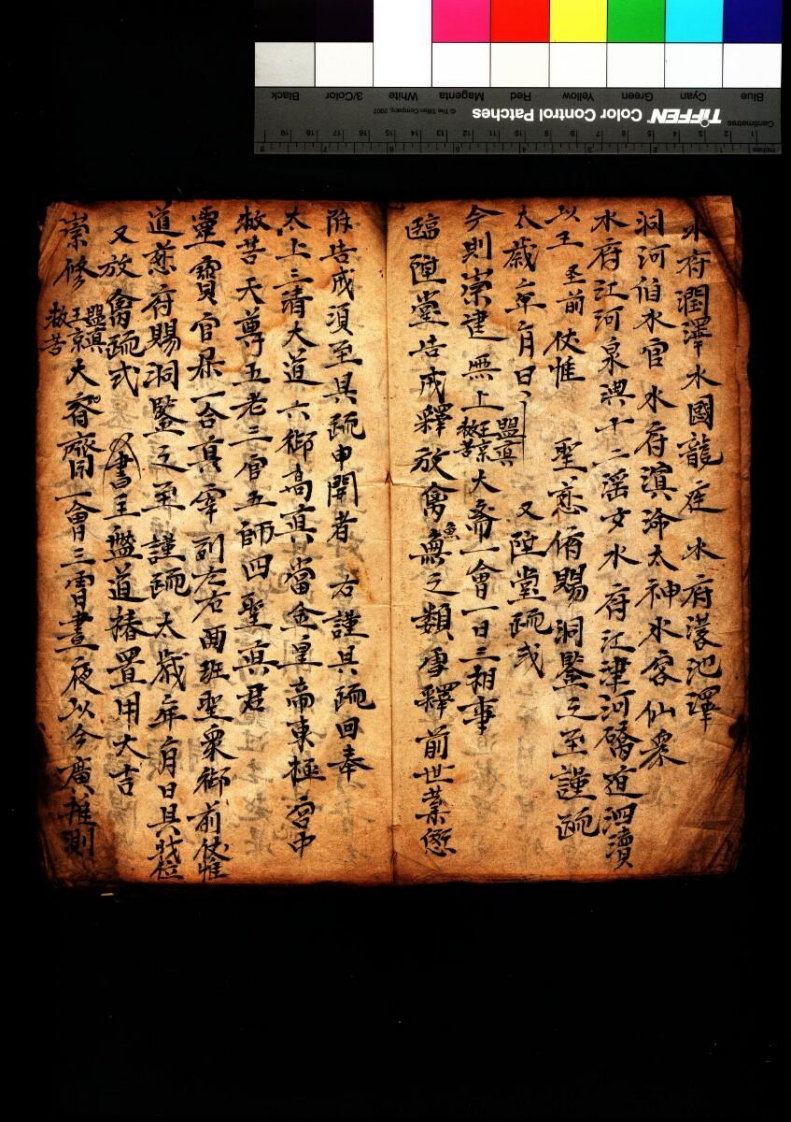 水府潤澤水國龍庭水府落池澤
洞河伯水官水府溟泠太神水客仙眾
水府江河泉淇十二溪女水府江津河橋迫泗瀆
以王 至前 伏惟 聖慈俯賜洞鑒之至謹疏
太歲 年 月日 盟真 玉京 救苦 又陞堂疏式
今則崇建無上 大齋一會一日三朝事
臨陞堂告成釋放禽魚無之類虔釋前世業愆
陞告成須至具疏申聞者 右謹具疏回奉
太上三清大道六御高真當金皇帝東極宮中
救苦天尊五老三官五師四聖真君
靈寶官界一合真宰 副左右兩班聖眾御前伏惟
道慈府賜洞鑒之至謹疏太歲 年 月日具職位
又放禽疏式 書王鑑道樁置用大吉
崇修 盟真 玉京 救苦 天齋醮一會三宵晝夜以今廣推測
Blue
Cyan
Green
Yellow
Red
Magenta
White
3/Color
Black
TIFFEN Color Control Patches
© The Tiffen Company, 2007
Centimetres
Inches